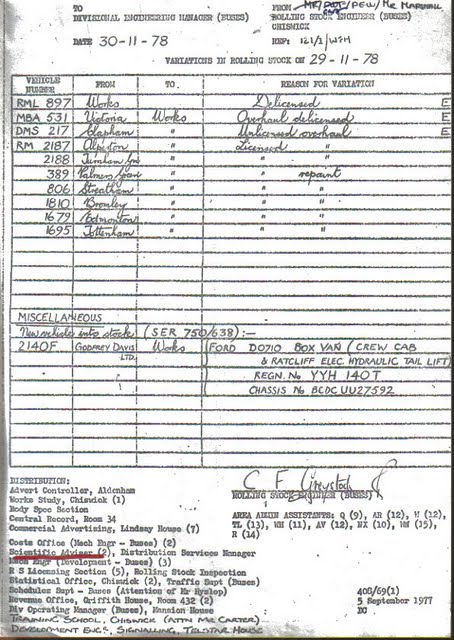 TO FROM MR PEW/MR MARSHALL
DIVISIONAL ENGINEERING MANAGER (BUSES) ROLLING STOCK ENGINEER (BUSES)
CHISWICK
DATE 30-11-78 REF: 121/1/WSM
VARIATIONS IN ROLLING STOCK ON 29-11-78
VEHICLE NUMBER FROM TO. REASON FOR VARIATION
RML 897 Works Delicensed E
MBA 531 Victoria Works Overhaul delicensed E
DMS 217 Clapham " Unlicensed overhaul E
RM 2187 Alperton " Licensed "
2188 Turnham Grn " " "
389 Palmers Green " " repaint
806 Streatham " " "
1810 Bromley " " "
1679 Edmonton " " "
1695 Tottenham " " "
MISCELLANEOUS
New vehicle into stock (SER 750/638):-
2140F GODFREY DAVIS LTD. Works FORD D0710 BOX VAN (CREW CAB
& RATCLIFF ELEC. HYDRAULIC TAIL LIFT)
REGN. No YYH 140T
CHASSIS No BCDC UU27592
DISTRIBUTION:
Advert Controller, Aldenham
Works Study, Chiswick (1)
Body Spec Section
Central Record, Room 34
Commercial Advertising, Lindsay House (7)
Costs Office (Mech Engr - Buses) (2)
Scientific Adviser (2), Distribution Services Manager
Mech Engr (Development - Buses) (3)
R S Licensing Section (5), Rolling Stock Inspection
Statistical Office, Chiswick (2), Traffic Supt (Buses)
Schedules Supt - Buses (Attention of Mr Hyslop)
Revenue Office, Griffith House, Room 432 (2)
Div Operating Manager (Buses), Mansion House
TRAINING SCHOOL, CHISWICK (ATTN MR CARTER)
DEVELOPMENT ENGR. SIGNALLING, TELSTAR HOUSE
C F Greystock
ROLLING STOCK ENGINEER (BUSES)
AREA ADMIN ASSISTANTS: Q (9), AR (12), W (12),
TL (13), WH (11), AV (12), NX (10), HW (15),
R (14)
408/69(1)
5 September 1977
DO